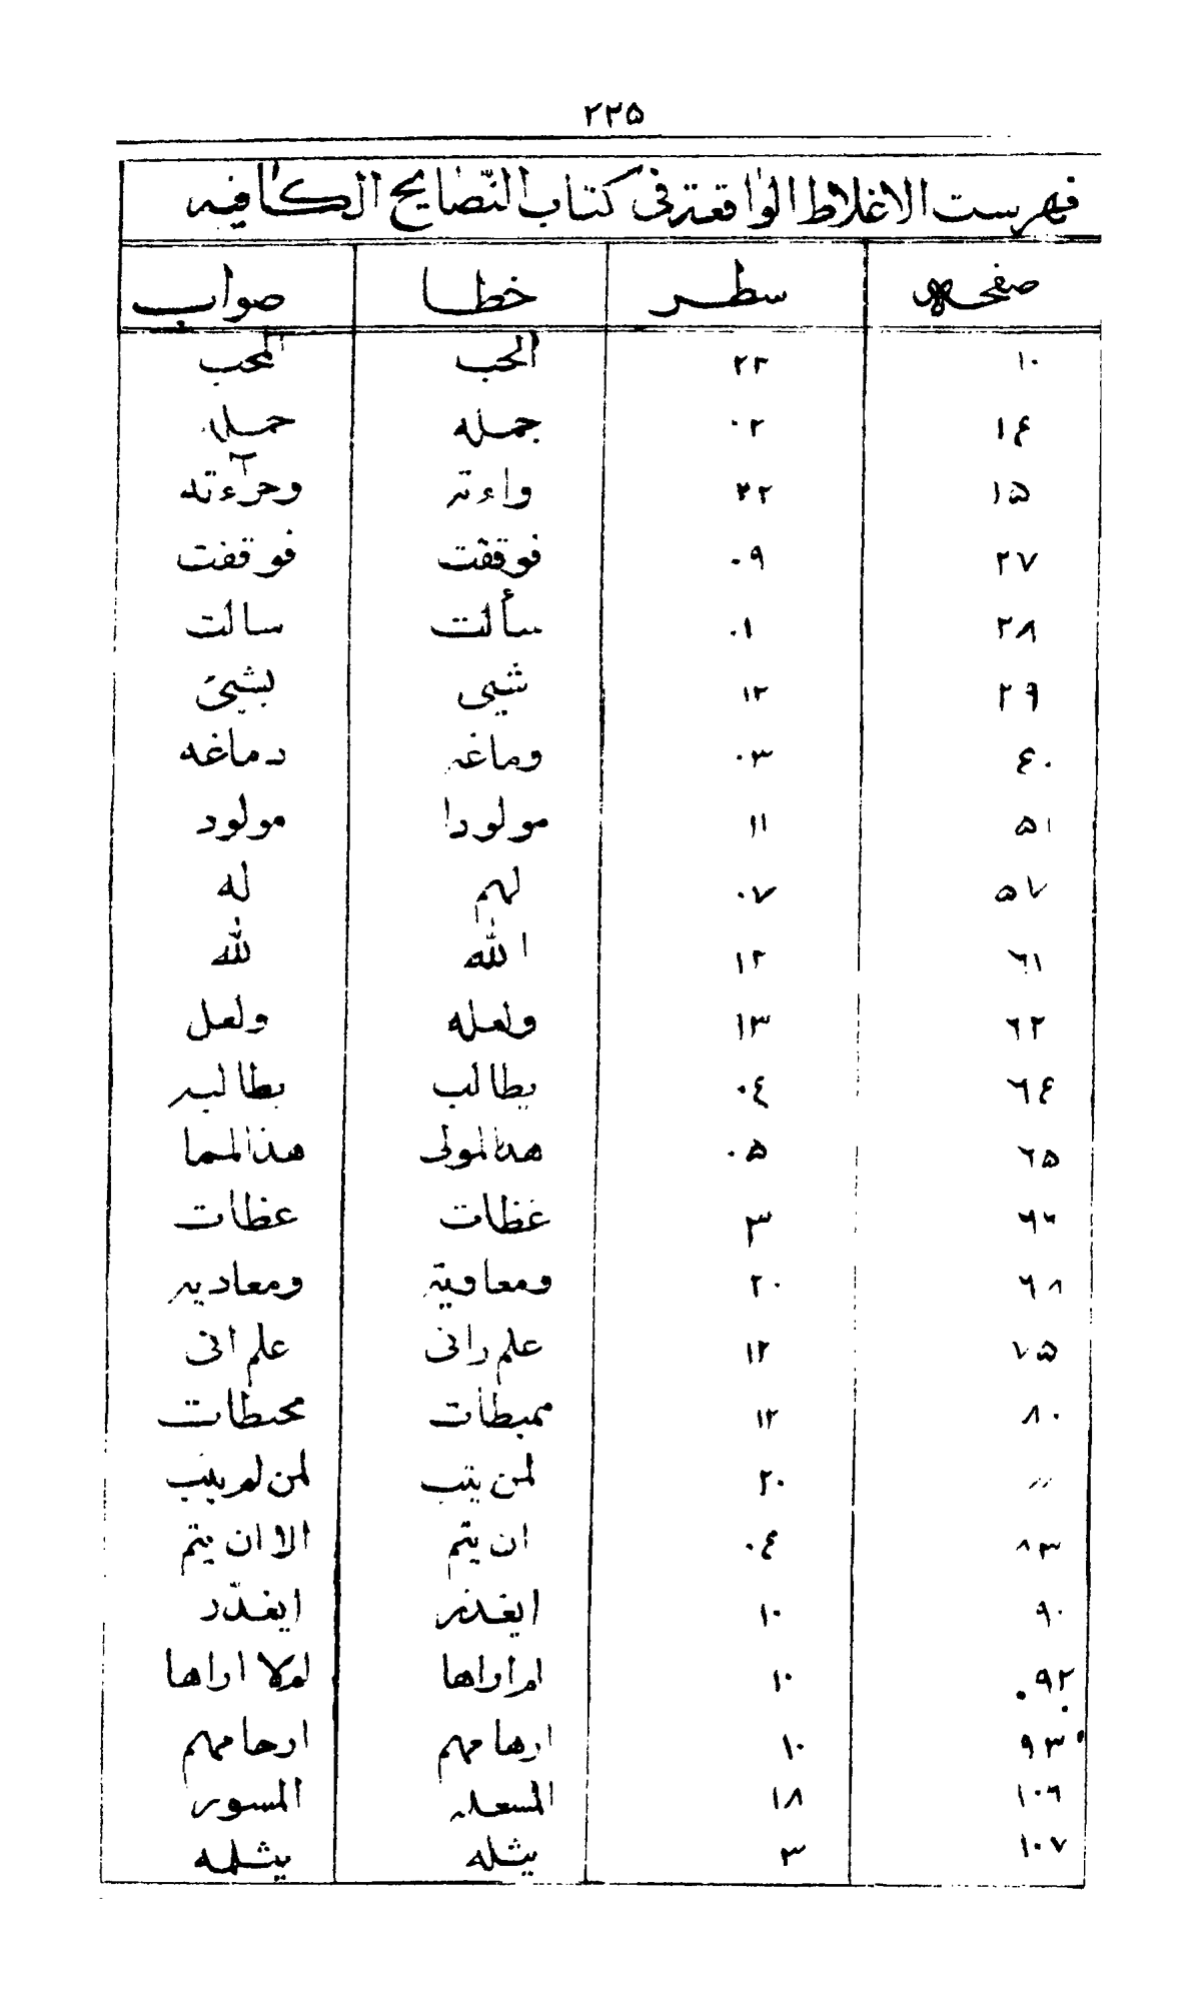 ٢٢٥
فهرست الاغلاط الواقعة فى كتاب النّصايح الكافيه
صفحه سطر خطا صواب
١٠ ٢٢ الحب المحب
١٤ ٠٢ جمله حمله
١٥ ٢٢ واءته وجرآءته
٢٧ ٠٩ فوقفت فوقفت
٢٨ ٠١ سألت سالت
٢٩ ١٢ شيى بشيئ
٤٠ ٠٣ وماغه دماغه
٥١ ١١ مولودا مولود
٥٧ ٠٧ لهم له
٦١ ١٢ الله لله
٦٢ ١٣ ولعله ولعل
٦٤ ٠٤ يطالب يطالبه
٦٥ ٠٥ هذالمولى هذالمما
٦٦ ٣ غظات عظات
٦٨ ٢٠ ومعاوية ومعاديه
٧٥ ١٢ علم رانى علم انى
٨٠ ١٢ ممبطات محبطات
〃 ٢٠ لمن يتب لمن لم يتب
٨٣ ٠٤ ان يتم الا ان يتم
٩٠ ١٠ ايغذر ايغدّر
٩٢ ١٠ ام اراها لم لا اراها
٩٣ ١٠ ارهامهم ارحامهم
١٠٦ ١٨ المسور
١٠٧ ٣ يثله يثلمه